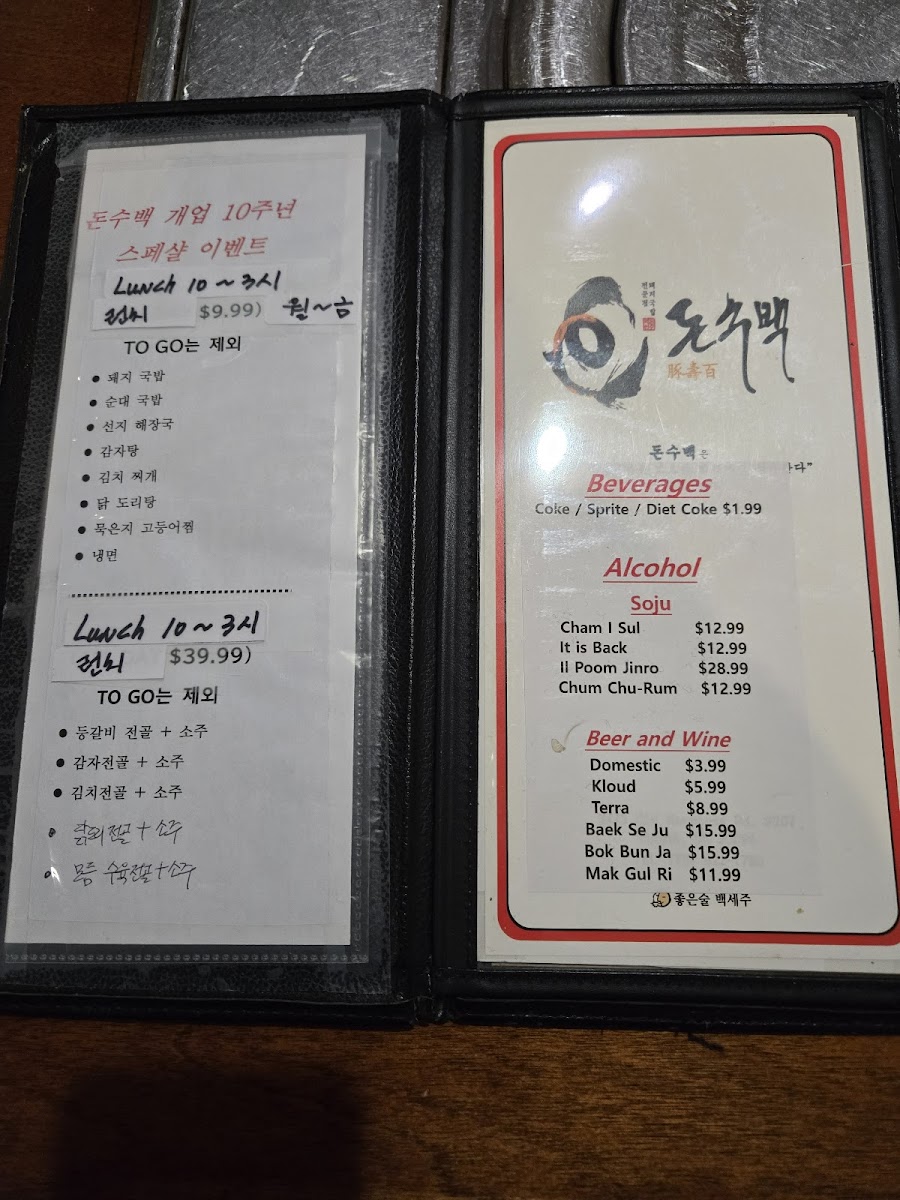 돈수백 개업 10주년
스페샬 이벤트
Lunch 10 ~ 3시
런치 $9.99) 월~금
TO GO는 제외
● 돼지 국밥
● 순대 국밥
● 선지 해장국
● 감자탕
● 김치 찌개
● 닭 도리탕
● 묵은지 고등어찜
● 냉면
Lunch 10 ~ 3시
런치 $39.99)
TO GO는 제외
● 등갈비 전골 + 소주
● 감자전골 + 소주
● 김치전골 + 소주
● 닭도리전골 + 소주
● 모듬 수육전골 + 소주
돼지국밥
전문점
돈수백
豚壽百
돈수백은
다"
Beverages
Coke / Sprite / Diet Coke $1.99
Alcohol
Soju
Cham I Sul $12.99
It is Back $12.99
Il Poom Jinro $28.99
Chum Chu-Rum $12.99
Beer and Wine
Domestic $3.99
Kloud $5.99
Terra $8.99
Baek Se Ju $15.99
Bok Bun Ja $15.99
Mak Gul Ri $11.99
좋은술 백세주